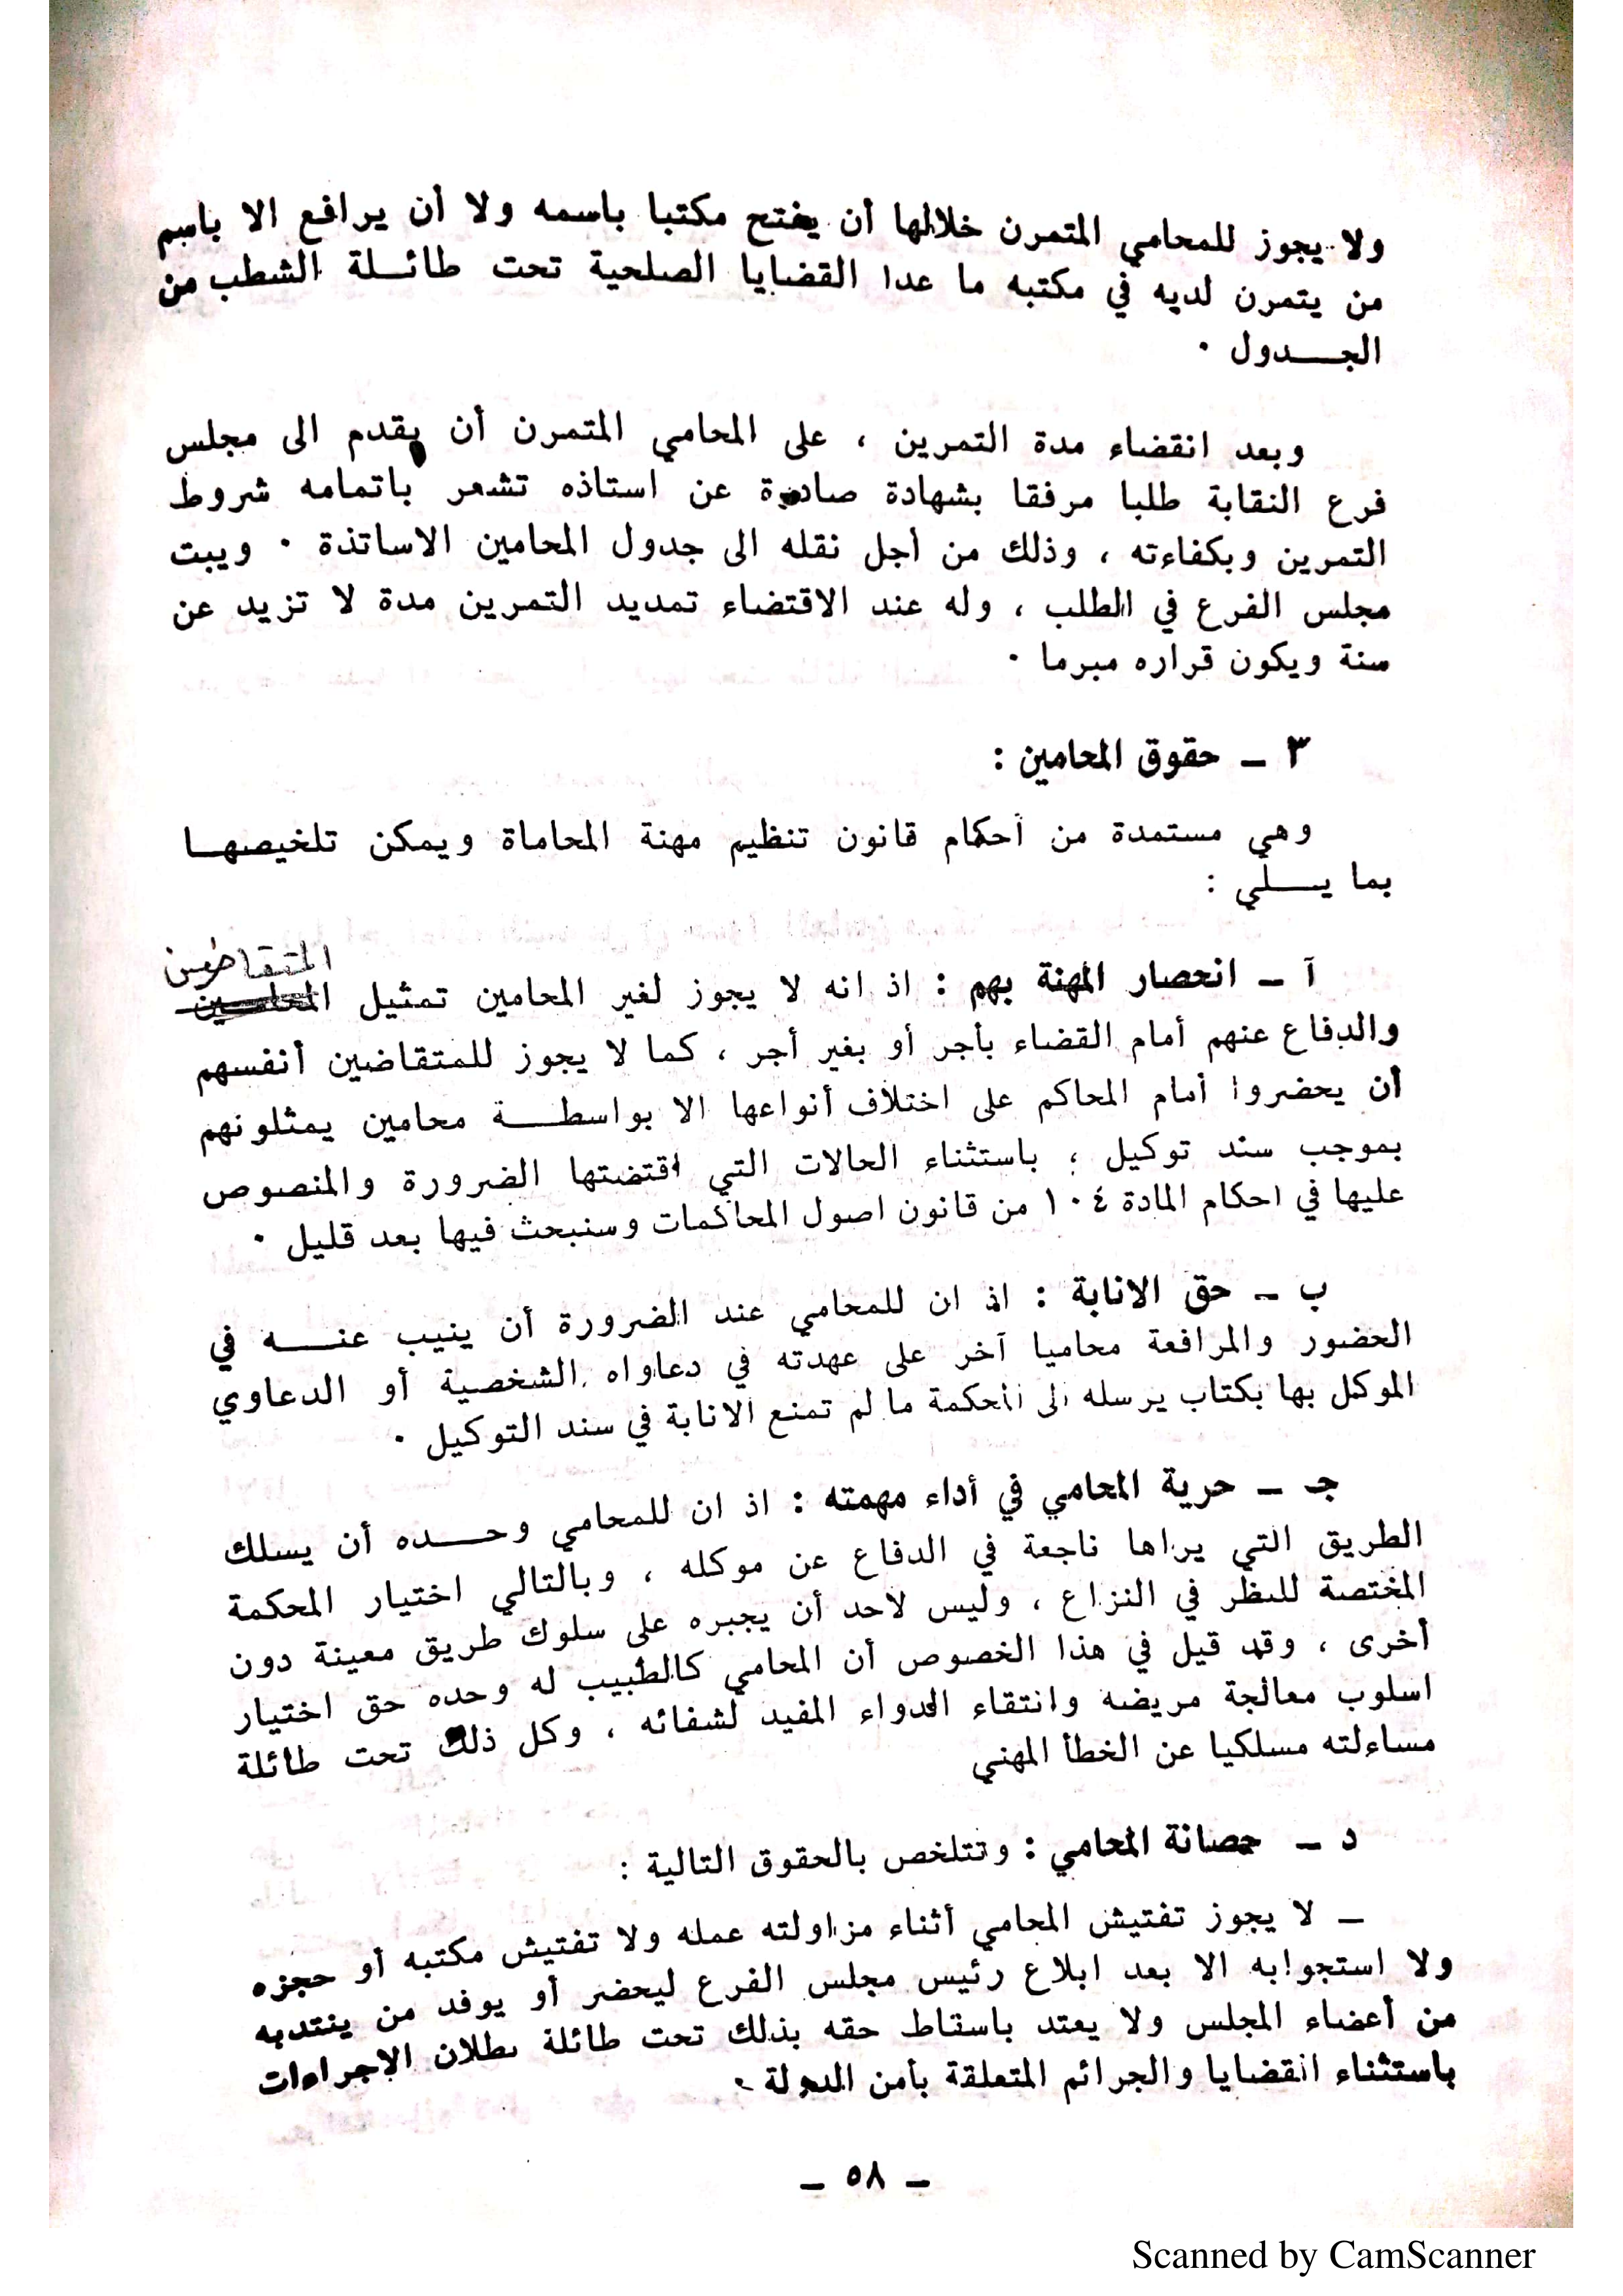 ولا يجوز للمحامي المتمرن خلالها أن يفتح مكتبا باسمه ولا أن يرافع الا باسم
من يتمرن لديه في مكتبه ما عدا القضايا الصلحية تحت طائـلة الشطب من
الجـــدول ٠
وبعد انقضاء مدة التمرين ، على المحامي المتمرن أن يقدم الى مجلس
فرع النقابة طلبا مرفقا بشهادة صادرة عن استاذه تشعر باتمامه شروط
التمرين وبكفاءته ، وذلك من أجل نقله الى جدول المحامين الاساتذة ٠ ويبت
مجلس الفرع في الطلب ، وله عند الاقتضاء تمديد التمرين مدة لا تزيد عن
سنة ويكون قراره مبرما ٠
٣ ـ حقوق المحامين :
وهي مستمدة من أحكام قانون تنظيم مهنة المحاماة ويمكن تلخيصهـا
بما يـــلي :
المتقاضين
آ ـ انحصار المهنة بهم : اذ انه لا يجوز لغير المحامين تمثيل المحامـين
والدفاع عنهم أمام القضاء بأجر أو بغير أجر ، كما لا يجوز للمتقاضين أنفسهم
أن يحضروا أمام المحاكم على اختلاف أنواعها الا بواسطـــة محامين يمثلونهم
بموجب سند توكيل ؛ باستثناء الحالات التي اقتضتها الضرورة والمنصوص
عليها في احكام المادة ١٠٤ من قانون اصول المحاكمات وسنبحث فيها بعد قليل ٠
ب ـ حق الانابة : اذ ان للمحامي عند الضرورة أن ينيب عنــــه في
الحضور والمرافعة محاميا آخر على عهدته في دعاواه الشخصية أو الدعاوي
الموكل بها بكتاب يرسله الى المحكمة ما لم تمنع الانابة في سند التوكيل ٠
جـ ـ حرية المحامي في أداء مهمته : اذ ان للمحامي وحـــده أن يسلك
الطريق التي يراها ناجعة في الدفاع عن موكله ، وبالتالي اختيار المحكمة
المختصة للنظر في النزاع ، وليس لاحد أن يجبره على سلوك طريق معينة دون
أخرى ، وقد قيل في هذا الخصوص أن المحامي كالطبيب له وحده حق اختيار
اسلوب معالجة مريضه وانتقاء الدواء المفيد لشفائه ، وكل ذلك تحت طائلة
مساءلته مسلكيا عن الخطأ المهني
د ـ حصانة المحامي : وتتلخص بالحقوق التالية :
ـ لا يجوز تفتيش المحامي أثناء مزاولته عمله ولا تفتيش مكتبه أو حجزه
ولا استجوابه الا بعد ابلاغ رئيس مجلس الفرع ليحضر أو يوفد من ينتدبه
من أعضاء المجلس ولا يعتد باسقاط حقه بذلك تحت طائلة بطلان الاجراءات
باستثناء القضايا والجرائم المتعلقة بأمن الدولة ٠
ـ ٥٨ ـ
Scanned by CamScanner